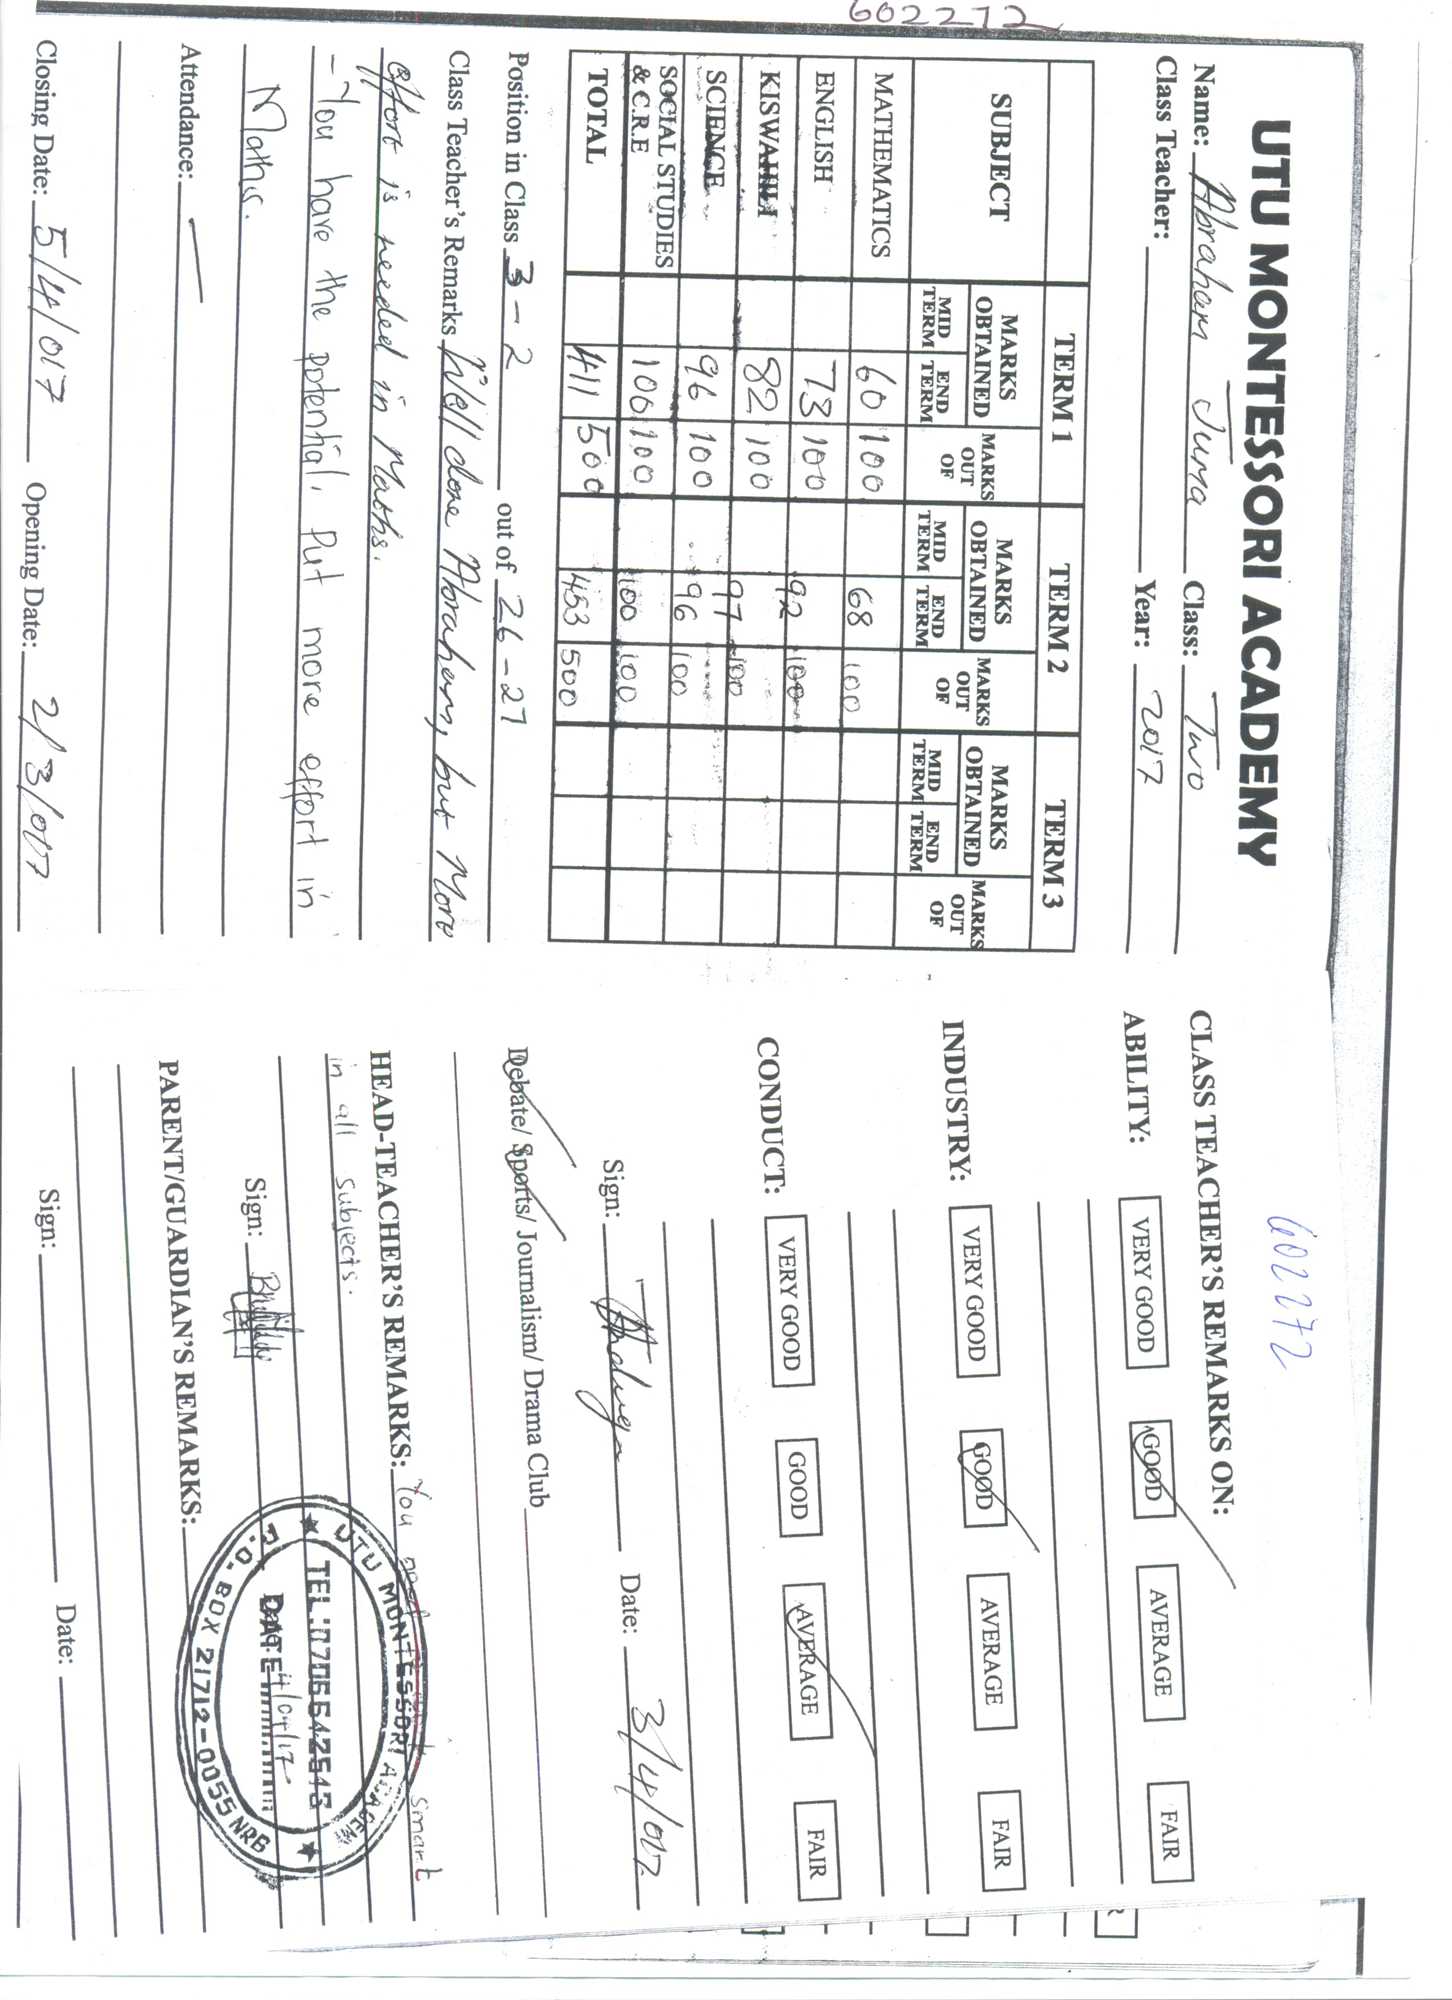 602272
UTU MONTESSORI ACADEMY
Name: Abraham Juma Class: Two
Class Teacher: Year: 2017
SUBJECT TERM 1 TERM 2 TERM 3
MARKS OBTAINED MARKS OUT OF MARKS OBTAINED MARKS OUT OF MARKS OBTAINED MARKS OUT OF
MID TERM END TERM MID TERM END TERM MID TERM END TERM
MATHEMATICS 60 100 68 100
ENGLISH 73 100 92 100
KISWAHILI 82 100 97 100
SCIENCE 96 100 96 100
SOCIAL STUDIES & C.R.E 100 100 100 100
TOTAL 411 500 453 500
Position in Class 3 - 2 out of 26 - 27
Class Teacher's Remarks Well done Abraham, but More
effort is needed in Maths.
- You have the potential, Put more effort in
Maths.
Attendance: —
Closing Date: 5/4/017 Opening Date: 2/3/017
602272
CLASS TEACHER'S REMARKS ON:
ABILITY: VERY GOOD GOOD AVERAGE FAIR
INDUSTRY: VERY GOOD GOOD AVERAGE FAIR
CONDUCT: VERY GOOD GOOD AVERAGE FAIR
Sign: Date: 3/4/017
Debate/ Sports/ Journalism/ Drama Club
HEAD-TEACHER'S REMARKS: You smart
in all subjects.
Sign: Date 4/04/17
UTU MONTESSORI ACADEMY
TEL:0706642543
DATE
P.O. BOX 21712-0055 NRB
PARENT/GUARDIAN'S REMARKS:
Sign: Date: